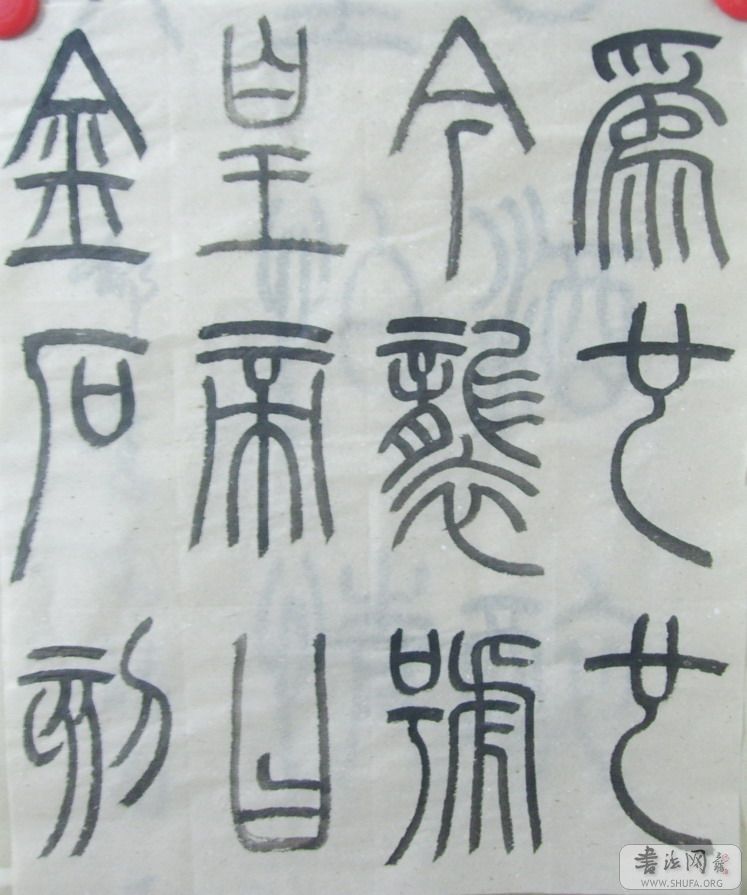 爲也也
今襲號
皇帝曰
金石刻
書法网
WWW.SHUFA.ORG